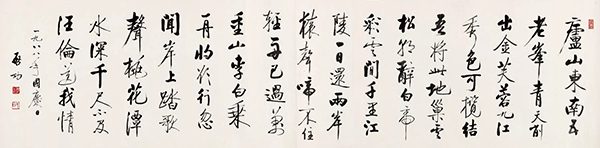 廬山東南五
老峯青天削
出金芙蓉九江
秀色可攬結
吾將此地巢雲
松朝辭白帝
彩雲間千里江
陵一日還兩岸
猿聲啼不住
輕舟已過萬
重山李白乘
舟將欲行忽
聞岸上踏歌
聲桃花潭
水深千尺不及
汪倫送我情
一九八六年國慶日
启功